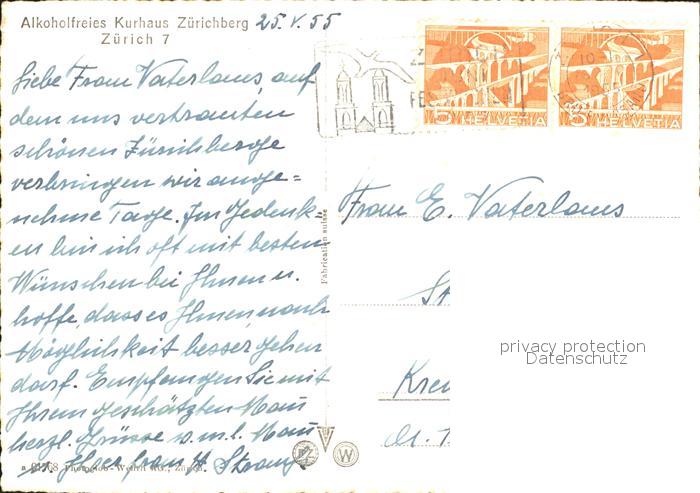 Alkoholfreies Kurhaus Zürichberg 25. V. 55
Zürich 7
Liebe Frau Vaterlaus, auf
dem uns vertrauten
schönen Zürichberge
verbringen wir ange=
nehme Tage. Im Gedenk
en bin ich oft mit besten
Wünschen bei Ihnen u.
hoffe, dass es Ihnen nach
Möglichkeit besser gehen
darf. Empfangen Sie mit
Ihrem geschätzten Mann
herzl. Grüsse v. m. l. Mann
u. Ihrer Frau H.
Fabrication suisse
Frau E. Vaterlaus
St
Kre
privacy protection
Datenschutz
5 HELVETIA
5 HELVETIA
W